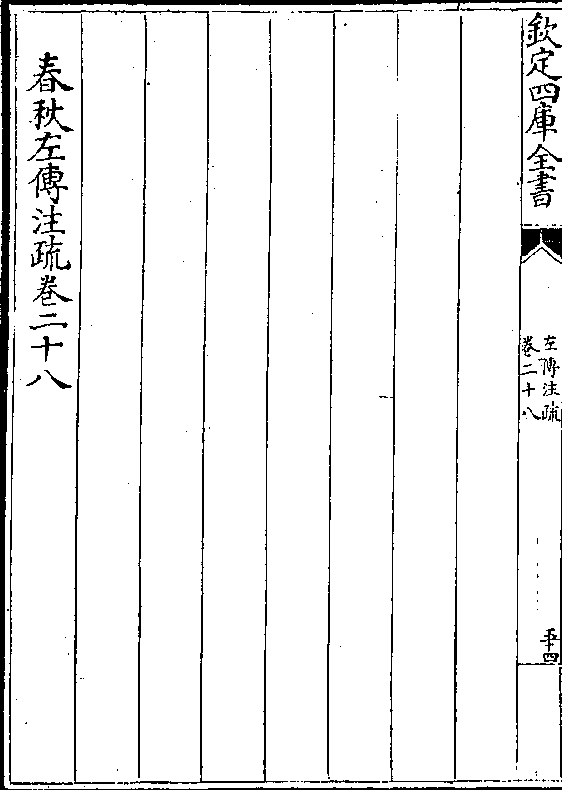 欽定四庫全書
左傳注疏
卷二十八
五十四
春秋左傳注疏卷二十八